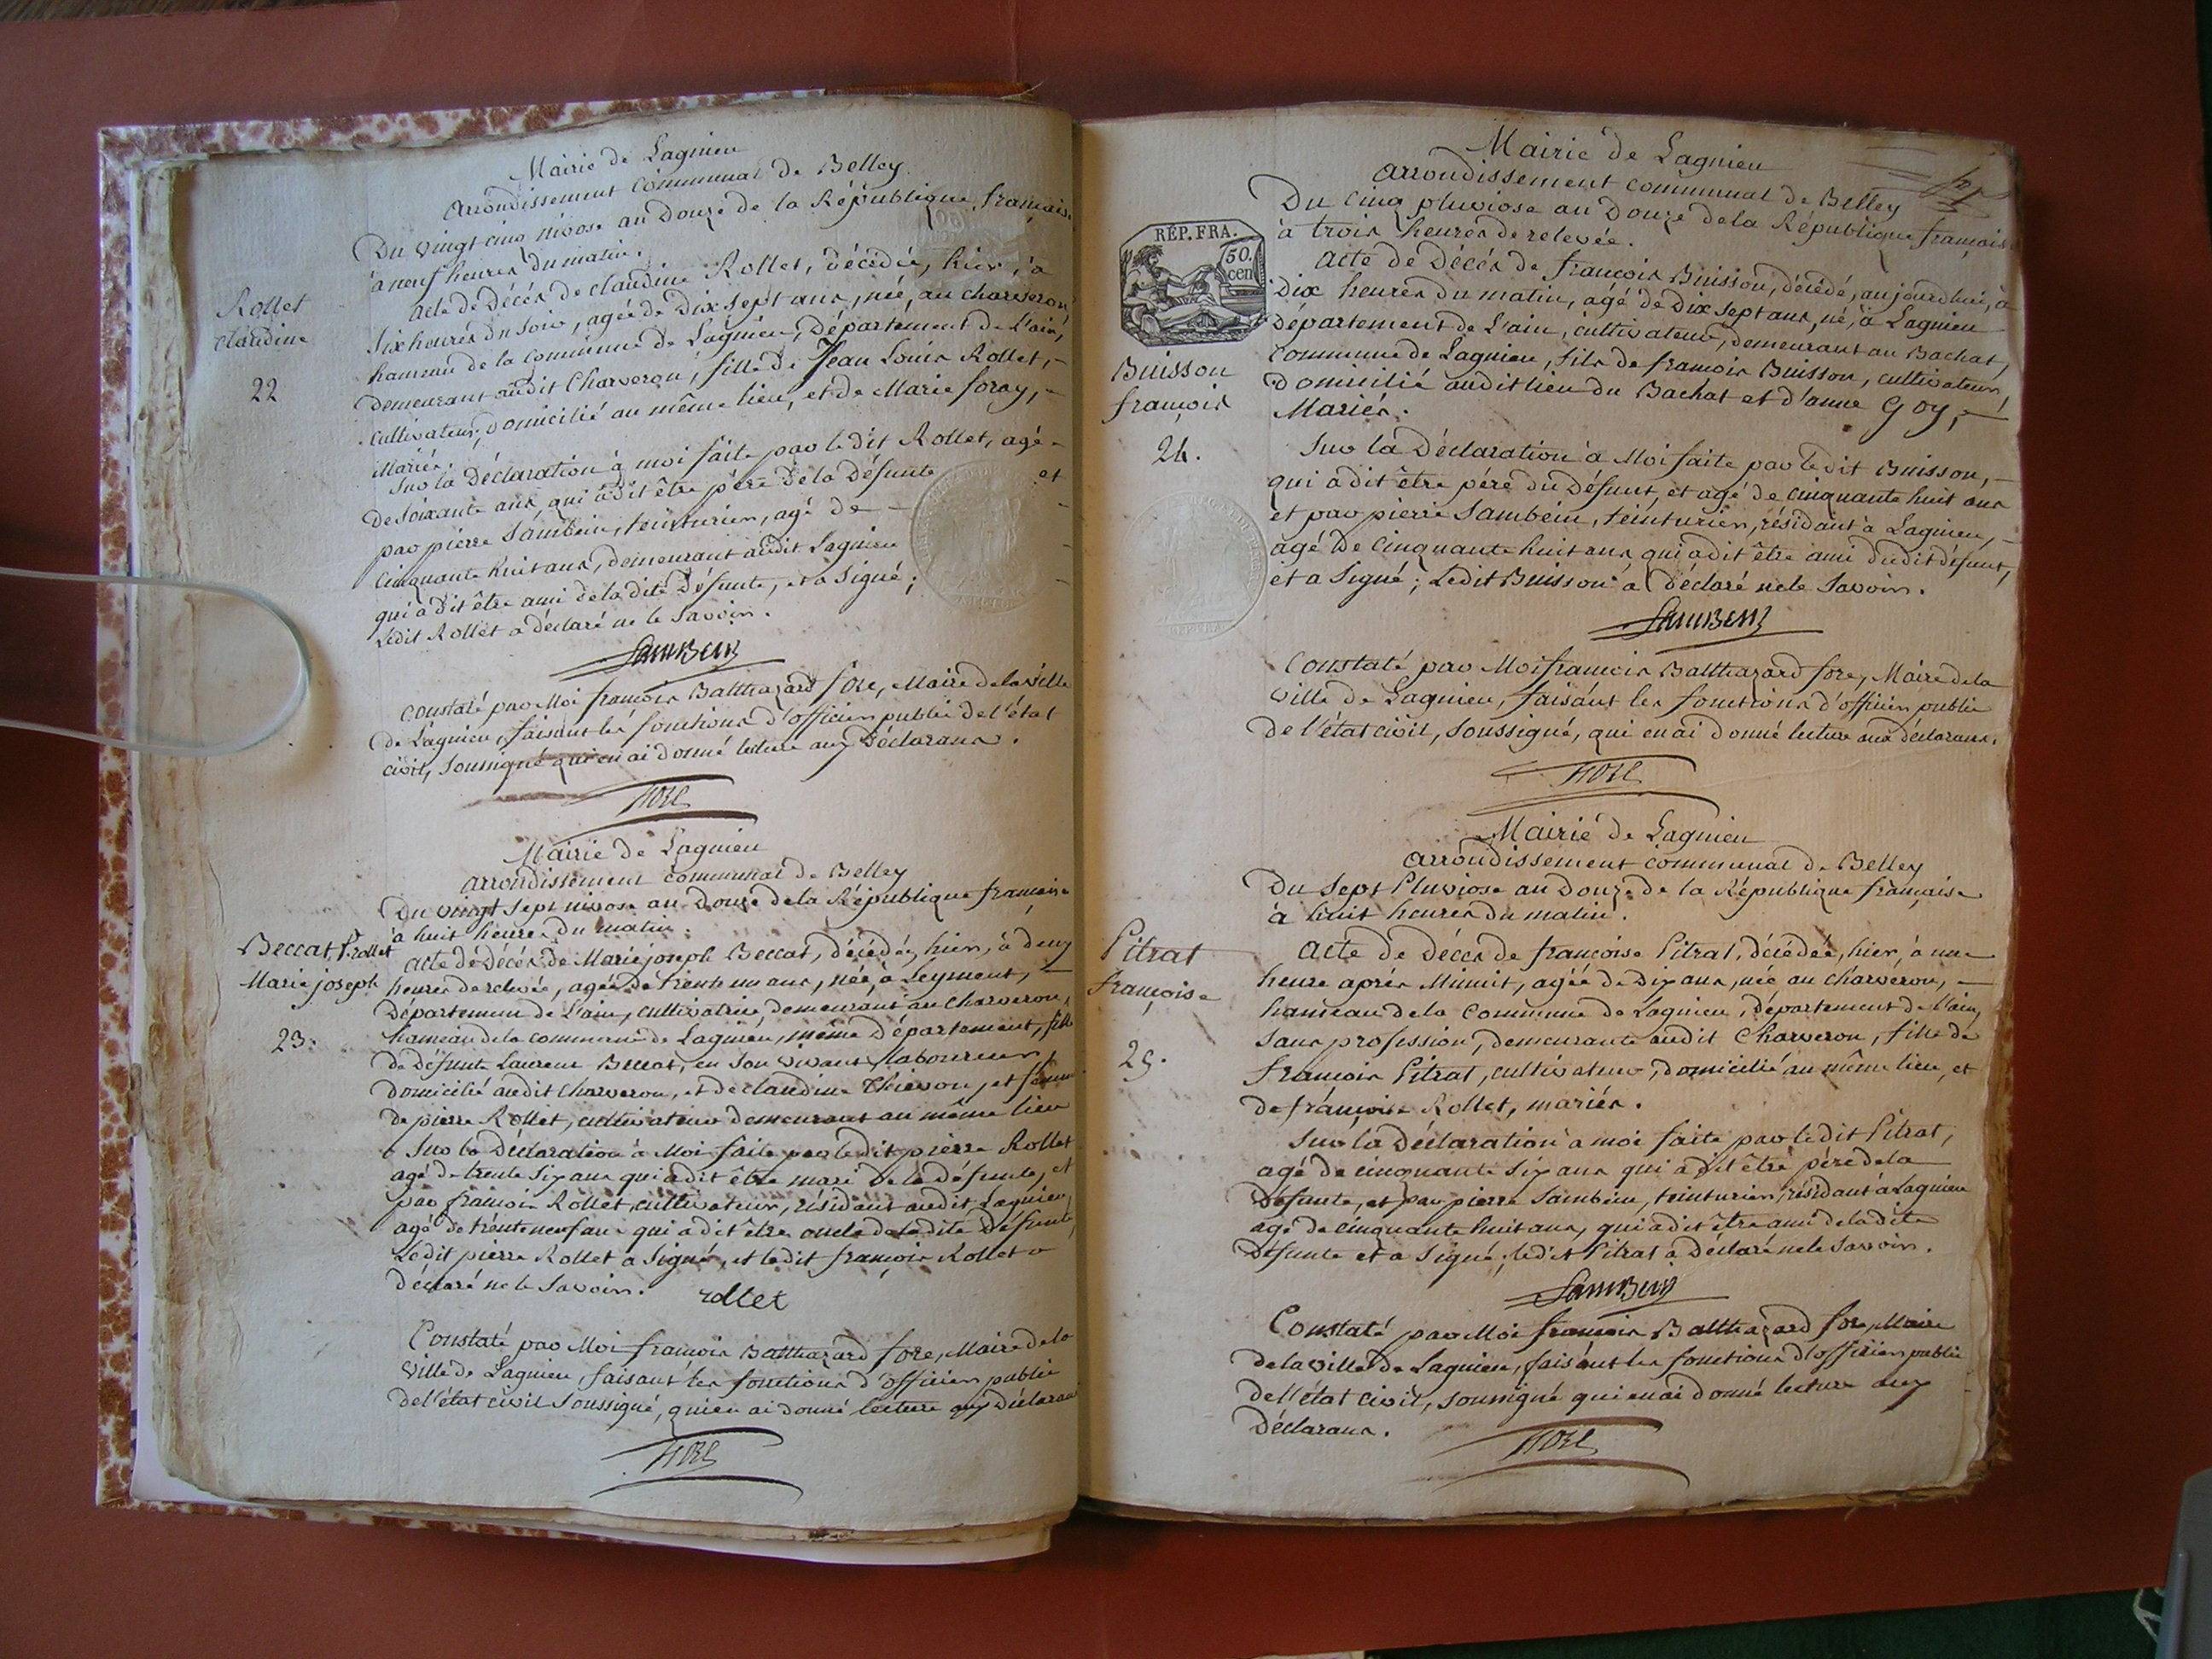 Mairie de Lagnieu
arrondissement Communal de Belley
Du vingt cinq nivose an Douze de la République française
à neuf heures du matin.
Rollet
claudine
22
acte de Décès de claudine Rollet, décédée, hier, à
six heures du soir, agée de Dix sept ans, née, au charveron,
hameau de la commune de Lagnieu, Département de L'ain,
Demeurant audit Charveron, fille de Jean Louis Rollet,
cultivateur, Domicilié au même lieu, et de Marie foray,
Mariés.
Sur la Déclaration à moi faite par le dit Rollet, agé
de soixante ans, qui a dit être père de la Défunte et
par pierre Sambein, teinturier, agé de
Cinquante huit ans, demeurant audit Lagnieu
qui a dit être ami de la dite Défunte, et a Signé;
Ledit Rollet a déclaré ne le Savoir.
SamBein
Constaté par Moi françois Balthazard fore, Maire de la ville
de Lagnieu, faisant les fonctions d'officier public de l'état
civil, Soussigné qui en ai donné lecture aux Déclarans.
FORE
Mairie de Lagnieu
arrondissement communal de Belley
Du vingt sept nivose an Douze de la République française
à huit heures du matin.
Beccat, f. rollet
Marie joseph
23.
acte de Décès de Marie joseph Beccat, décédée, hier, à deux
heures de relevée, agée de trente un ans, née, à Leyment,
Département de L'ain, cultivatrice, demeurant au Charveron,
hameau de la commune de Lagnieu, même Département, fille
de Défunt Laurent Beccat, en Son vivant laboureur,
Domicilié audit Charveron, et de claudine Thievon, et femme
de pierre Rollet, cultivateur demeurant au même lieu
Sur la Déclaration à Moi faite par ledit pierre Rollet
agé de trente Six ans qui a dit être mari de la Défunte, et
par françois Rollet, cultivateur, résidant audit Lagnieu,
agé de trente neuf ans qui a dit être oncle de la dite Défunte,
Ledit pierre Rollet a Signé, et ledit françois Rollet a
Déclaré ne le Savoir.
rollet
Constaté par Moi françois Balthazard fore, Maire de la
Ville de Lagnieu, faisant les fonctions d'officier public
de l'état civil Soussigné, qui en ai donné lecture aux Déclarans
FORE
Mairie de Lagnieu
arrondissement communal de Belley
Du Cinq pluviose an Douze de la République française
à trois heures de relevée.
RÉP. FRA.
50.
cen
Buisson
françois
24.
Acte de Décès de françois Buisson, décédé, aujourdhui, à
Dix heures du matin, agé de Dix sept ans, né, à Lagnieu
Département de L'ain, cultivateur, demeurant au Bachat,
Commune de Lagnieu, fils de françois Buisson, cultivateur,
Domicilié audit lieu du Bachat et d'anne Goy,
Mariés.
Sur la Déclaration à Moi faite par le dit Buisson,
qui a dit être père du Défunt, et agé de cinquante huit ans
et par pierre Sambein, teinturier, résidant à Lagnieu,
agé de Cinquante huit ans, qui a dit être ami dudit défunt,
et a Signé; Ledit Buisson a déclaré ne le Savoir.
SamBein
Constaté par Moi françois Balthazard fore, Maire de la
Ville de Lagnieu, faisant les fonctions d'officier public
de l'état civil, Soussigné, qui en ai Donné lecture aux déclarans.
FORE
Mairie de Lagnieu
arrondissement communal de Belley
Du Sept Pluviose an Douze de la République française
à huit heures du matin.
Pitrat
françoise
25.
Acte de Décès de françoise Pitrat, décédée, hier, à une
heure après Minuit, agée de Dix ans, née au Charveron,
hameau de la Commune de Lagnieu, Département de L'ain,
Sans profession, Demeurante audit Charveron, fille de
françois Pitrat, cultivateur, domicilié au même lieu, et
de françoise Rollet, mariés.
Sur la Déclaration à moi faite par ledit Pitrat,
agé de cinquante Six ans qui a dit être père de la
Défunte, et par pierre Sambein, teinturier, résidant à Lagnieu
agé de cinquante huit ans, qui a dit être ami de la dite
Défunte et a Signé; ledit Pitrat a Déclaré ne le Savoir.
SamBein
Constaté par Moi françois Balthazard fore, Maire
de la ville de Lagnieu, faisant les fonctions d'officier public
de l'état civil, soussigné qui en ai donné lecture aux
Déclarans.
FORE